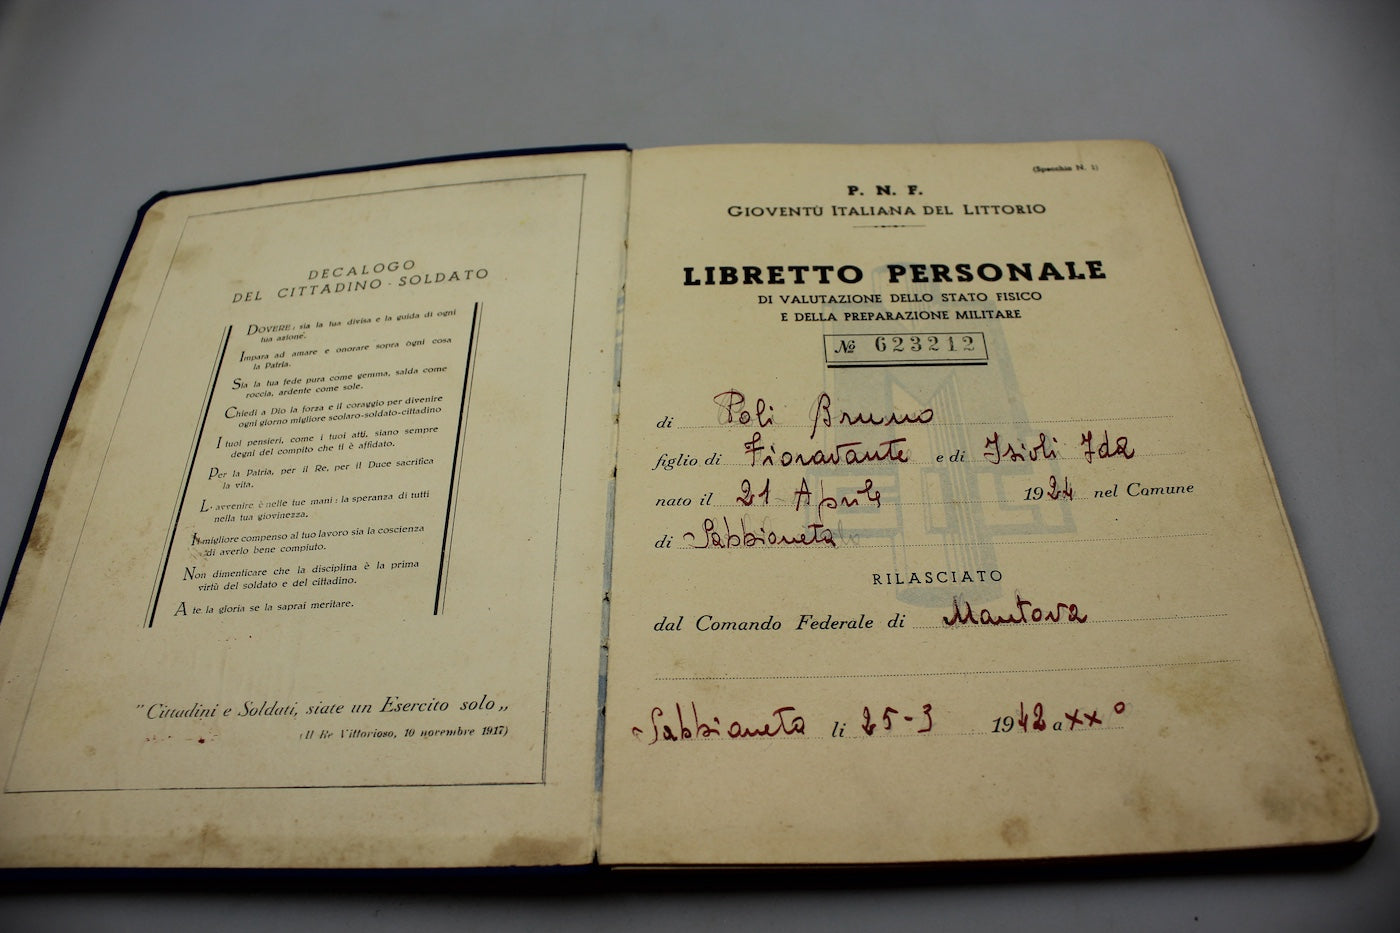 DECALOGO
DEL CITTADINO - SOLDATO
DOVERE: sia la tua divisa e la guida di ogni
tua azione.
Impara ad amare e onorare sopra ogni cosa
la Patria.
Sia la tua fede pura come gemma, salda come
roccia, ardente come sole.
Chiedi a Dio la forza e il coraggio per divenire
ogni giorno migliore scolaro-soldato-cittadino
I tuoi pensieri, come i tuoi atti, siano sempre
degni del compito che ti è affidato.
Per la Patria, per il Re, per il Duce sacrifica
la vita.
L'avvenire è nelle tue mani: la speranza di tutti
nella tua giovinezza.
Il migliore compenso al tuo lavoro sia la coscienza
di averlo bene compiuto.
Non dimenticare che la disciplina è la prima
virtù del soldato e del cittadino.
A te la gloria se la saprai meritare.
"Cittadini e Soldati, siate un Esercito solo„
(Il Re Vittorioso, 10 novembre 1917)
(Specchio N. 1)
P. N. F.
GIOVENTÙ ITALIANA DEL LITTORIO
LIBRETTO PERSONALE
DI VALUTAZIONE DELLO STATO FISICO
E DELLA PREPARAZIONE MILITARE
№ 623212
di Poli Bruno
figlio di Fioravante e di Isioli Ida
nato il 21 Aprile 1924 nel Comune
di Sabbioneta
RILASCIATO
dal Comando Federale di Mantova
Sabbioneta li 25-3 1942 a XX°